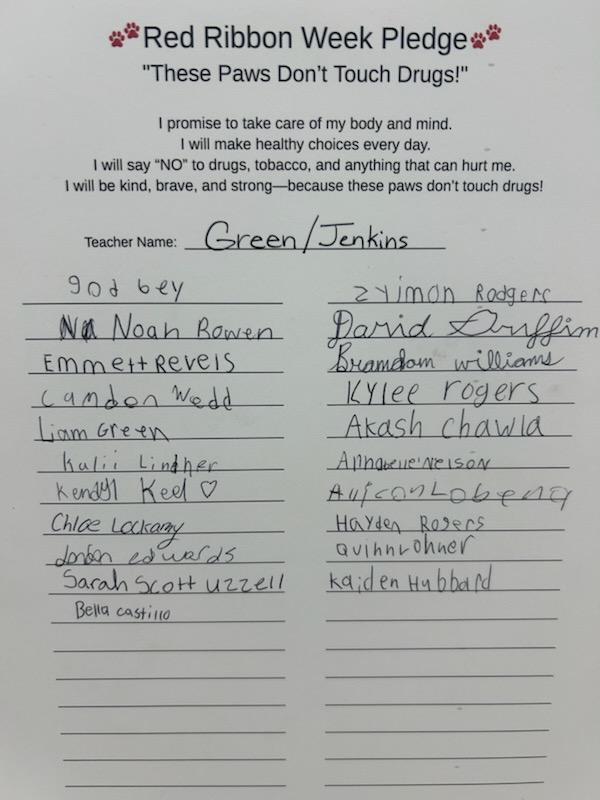 Red Ribbon Week Pledge
"These Paws Don't Touch Drugs!"
I promise to take care of my body and mind.
I will make healthy choices every day.
I will say “NO” to drugs, tobacco, and anything that can hurt me.
I will be kind, brave, and strong—because these paws don't touch drugs!
Teacher Name: Green/Jenkins
god bey
Noah Bowen
Emmett Revels
Camdon Wedd
Liam Green
Kalii Lindner
Kendyl Keel ♡
Chloe Lockamy
edwards
Sarah Scott uzzell
Bella castillo
zyimon Rodgers
David Griffin
Brandon williams
Kylee rogers
Akash chawla
Annabelle Nelson
Hayden Rogers
Quinn rohner
Kaiden Hubbard